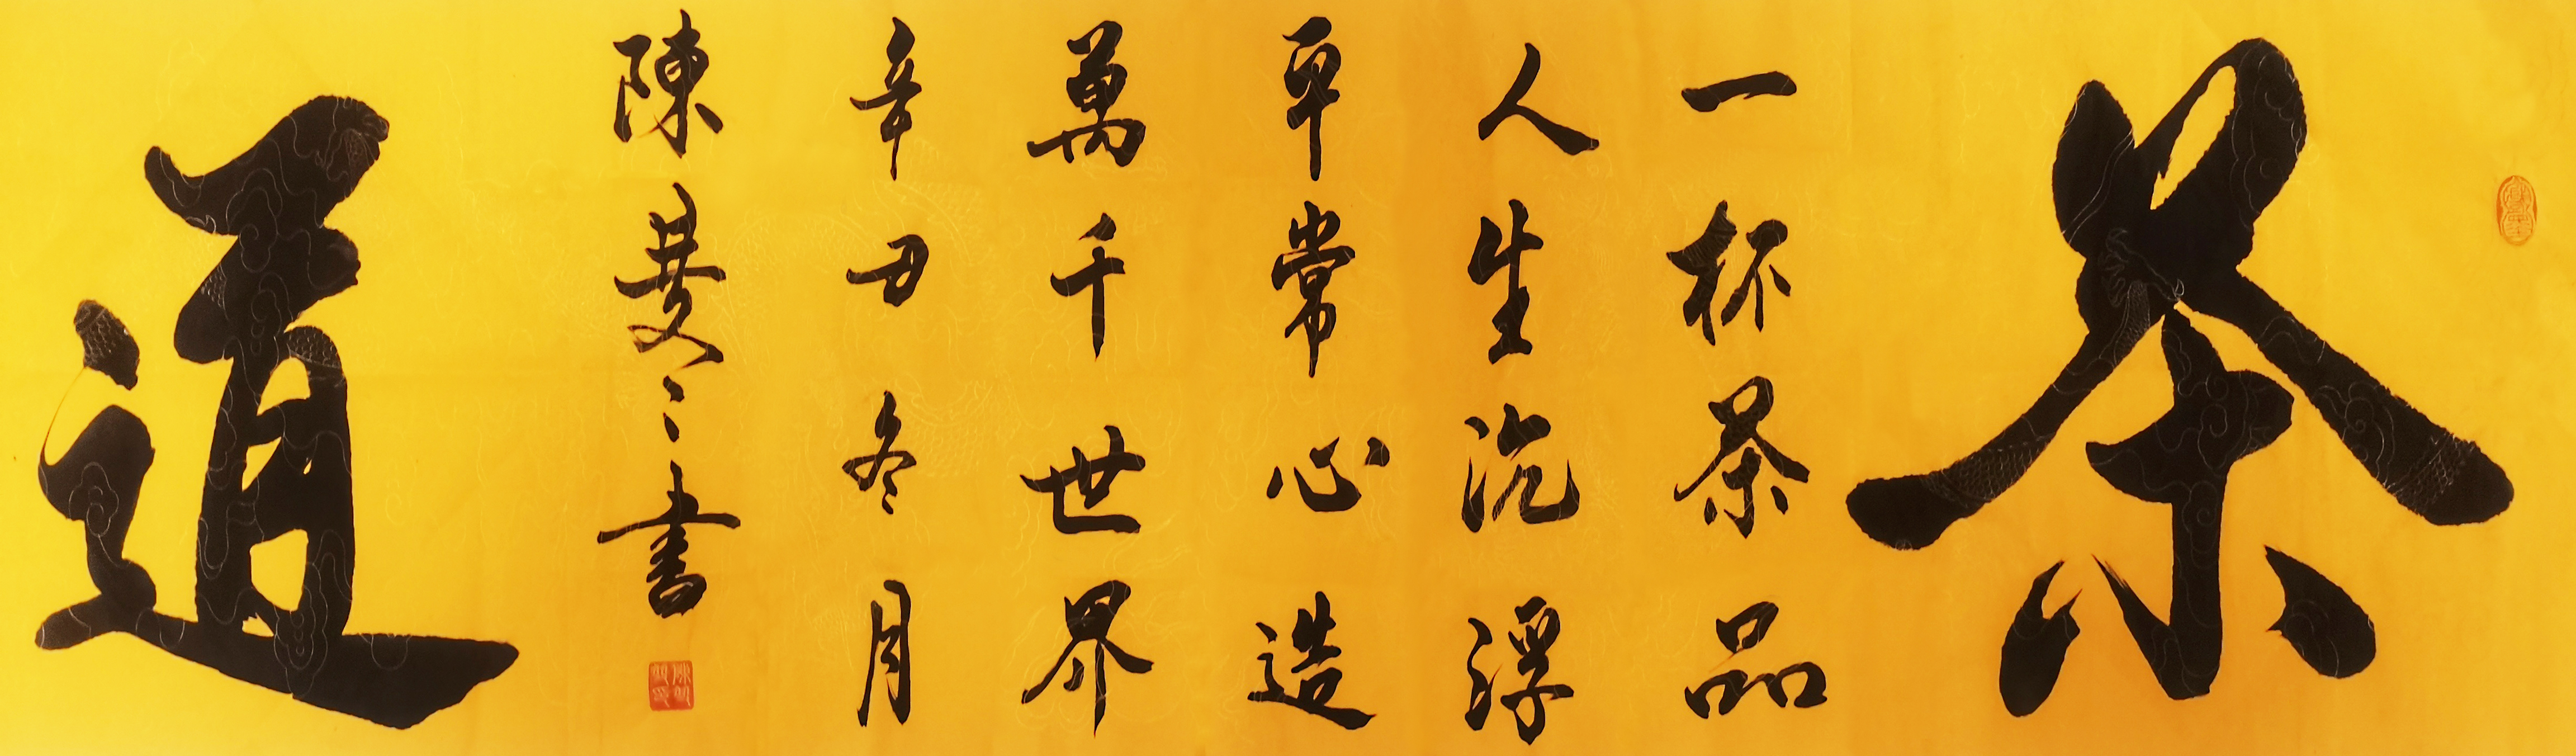 茶
一杯茶品
人生沉浮
平常心造
萬千世界
辛丑冬月
陳
書
道